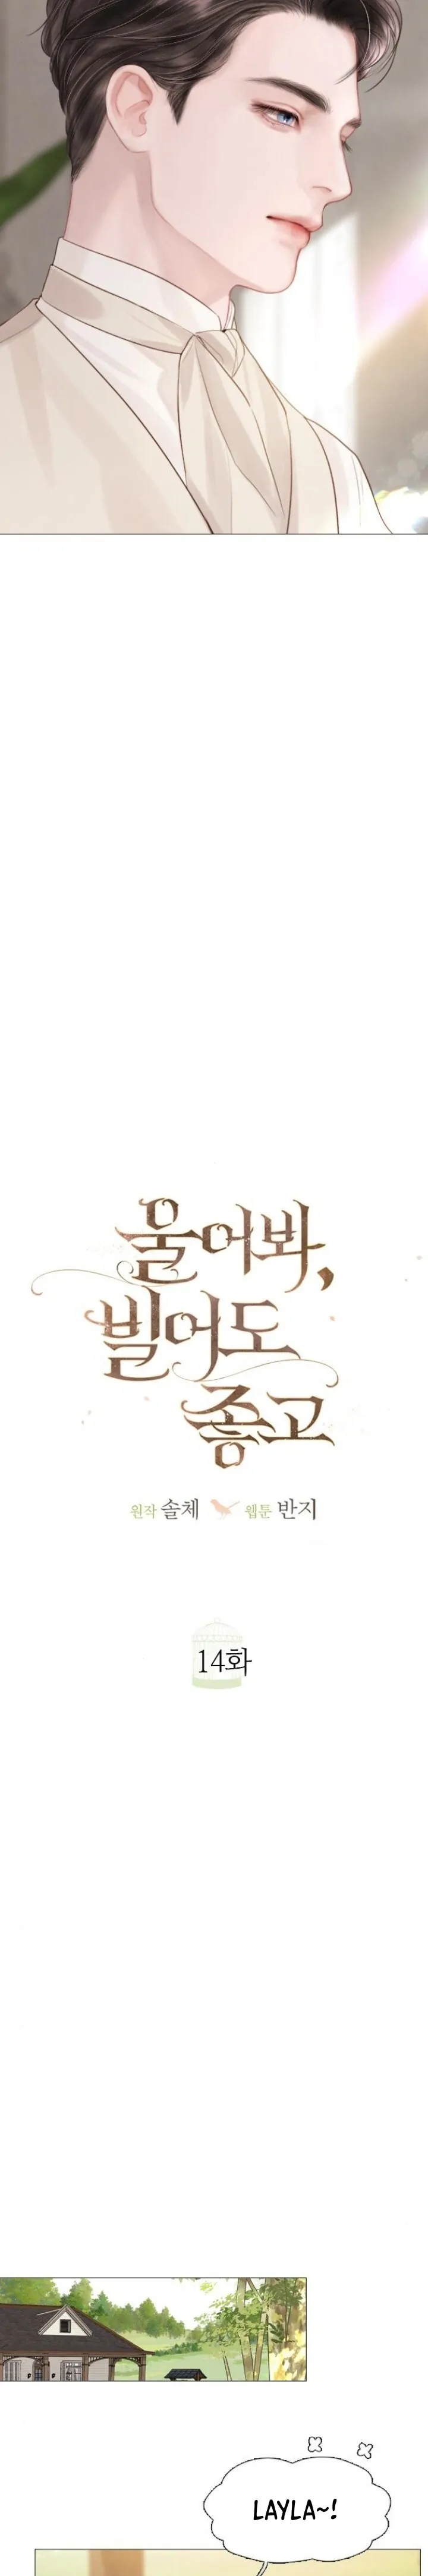 울어봐,
빌어도
좋고
원작 솔체 웹툰 반지
14화
LAYLA~!